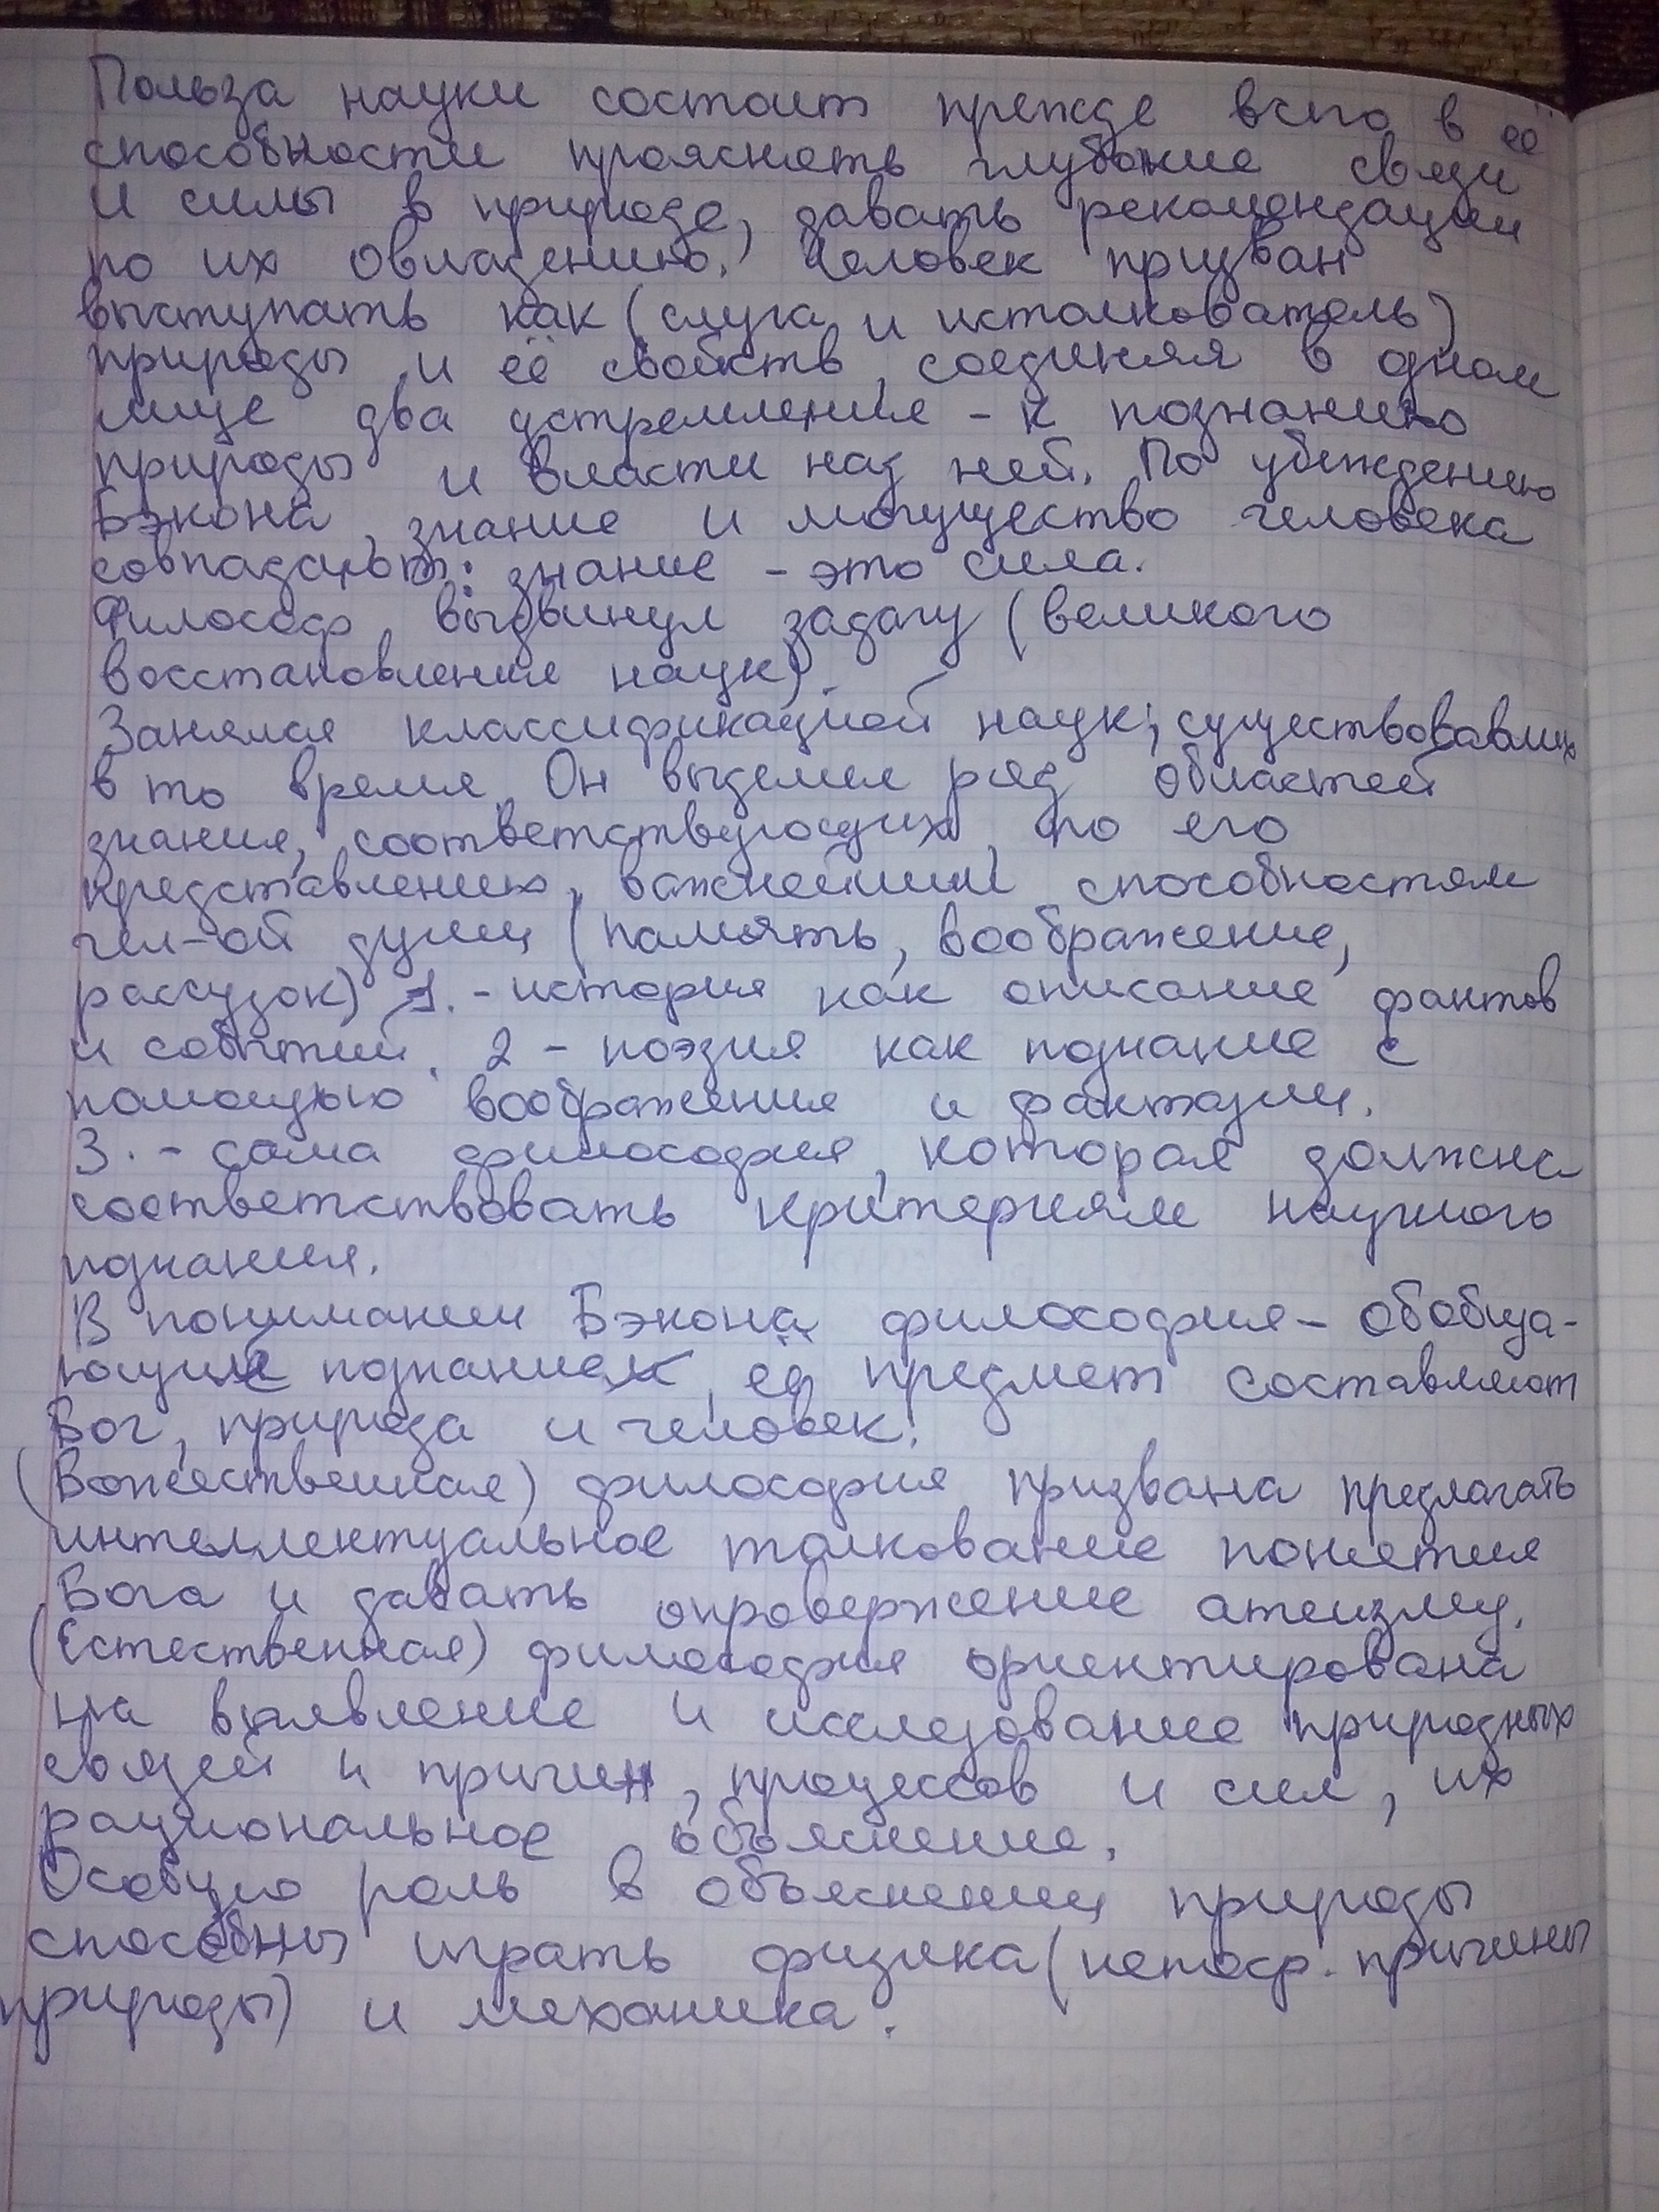 Польза науки состоит прежде всго в её
способности прояснять глубокие связи
и силы в природе, давать рекомендации
по их овладению. Человек призван
выступать как (слуга и истолкователь)
природы и её свойств, соединяя в одном
лице два устремления - к познанию
природы и власти над ней. По убеждению
Бэкона, знание и могущество человека
совпадают: знание - это сила.
Философ выдвинул задачу (великого
восстановления наук).
Занялся классификацией наук, существовавших
в то время. Он выделил ряд областей
знания, соответствующих, по его
представлению, важнейшим способностям
чел-ой души (память, воображение,
рассудок) 1. - история как описание фактов
и событий. 2 - поэзия как познание с
помощью воображения и фантазии.
3. - сама философия, которая должна
соответствовать критериям научного
познания.
В понимании Бэкона философия - обобща-
ющие познания, её предмет составляют
Бог, природа и человек.
(Божественная) философия призвана предлагать
интеллектуальное толкование понятия
Бога и давать опровержение атеизму.
(Естественная) философия ориентирована
на выявление и исследование природных
связей и причин, процессов и сил, их
рациональное объяснение.
Особую роль в объяснении природы
способны играть физика (непоср. причины
природы) и механика.